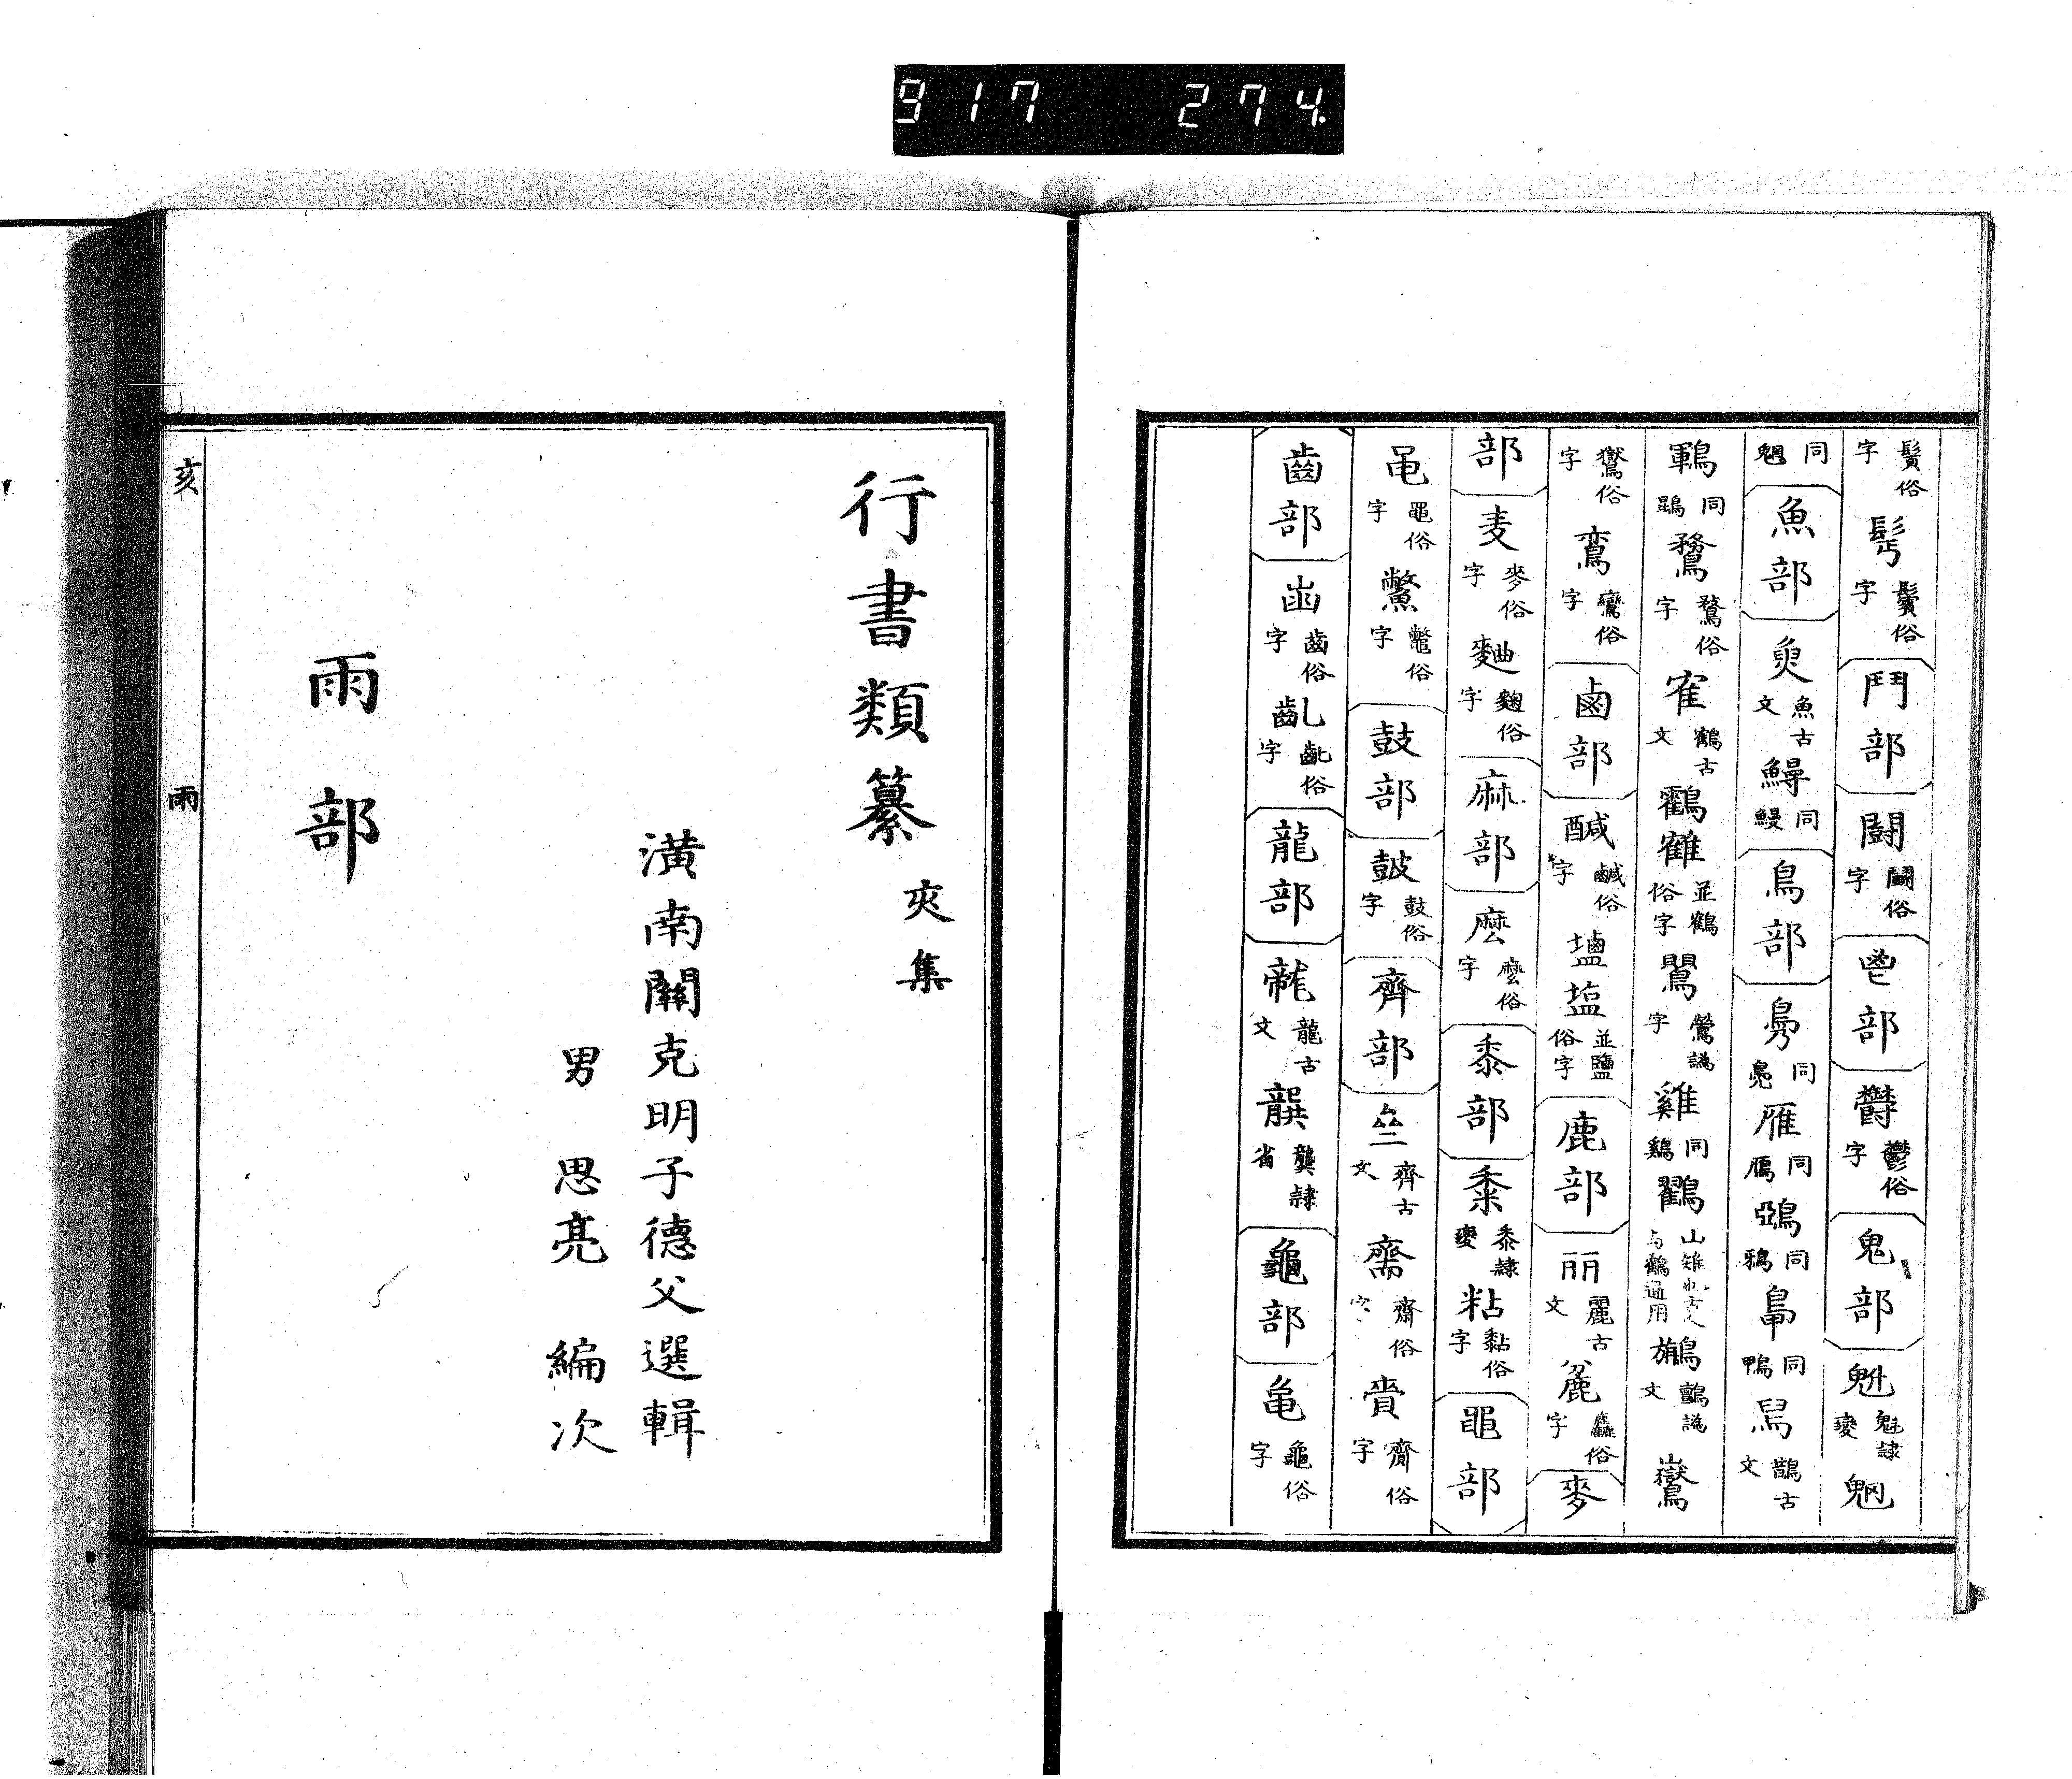 917 274.
鬢俗字 髩 鬢俗字 鬥部 鬪 鬭俗字 鬯部 欝 鬱俗字 鬼部 魁隷變 魍
同魎 魚部 𤋳 魚古文 鱘 同鰻 鳥部 同鳧 雁 同鴈 鵶 同鴉 同鴨 舃 鵲古文
鶤 同鵾 鶩俗字 寉 鶴古文 鸖 隺 並鶴俗字 鶯譌字 雞 同鷄 鸐 山雉也 与鶴通用 鸇譌文 鸑
鸑俗字 鵉 鸞俗字 鹵部 醎 鹹俗字 塩 並鹽俗字 鹿部 丽 麗古文 麄 麤俗字 麥
部 麦 麥俗字 麯 麴俗字 麻部 麽 麼俗字 黍部 黍隷變 粘 黏俗字 黽部
黾 黽俗字 鱉 鼈俗字 鼓部 皷 鼓俗字 齊部 亝 齊古文 斋 齋俗字 賫 齎俗字
齒部 齒俗字 齓 齔俗字 龍部 龍古文 龔隷省 龜部 亀 龜俗字
行書類纂 亥集
潢南關克明子德父選輯
男 思亮 編次
雨部
亥 雨